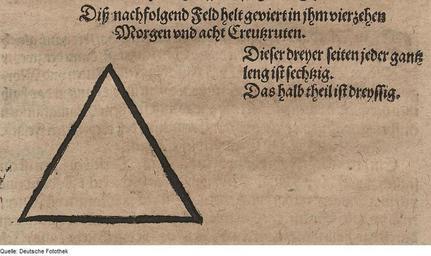 Diß nachfolgend Feld helt geviert in jhm vierzehen
Morgen vnd acht Creutzruten.
Dieser dreyer seiten jeder gantz
leng ist sechtzig.
Das halb theil ist dreyssig.
Quelle: Deutsche Fotothek